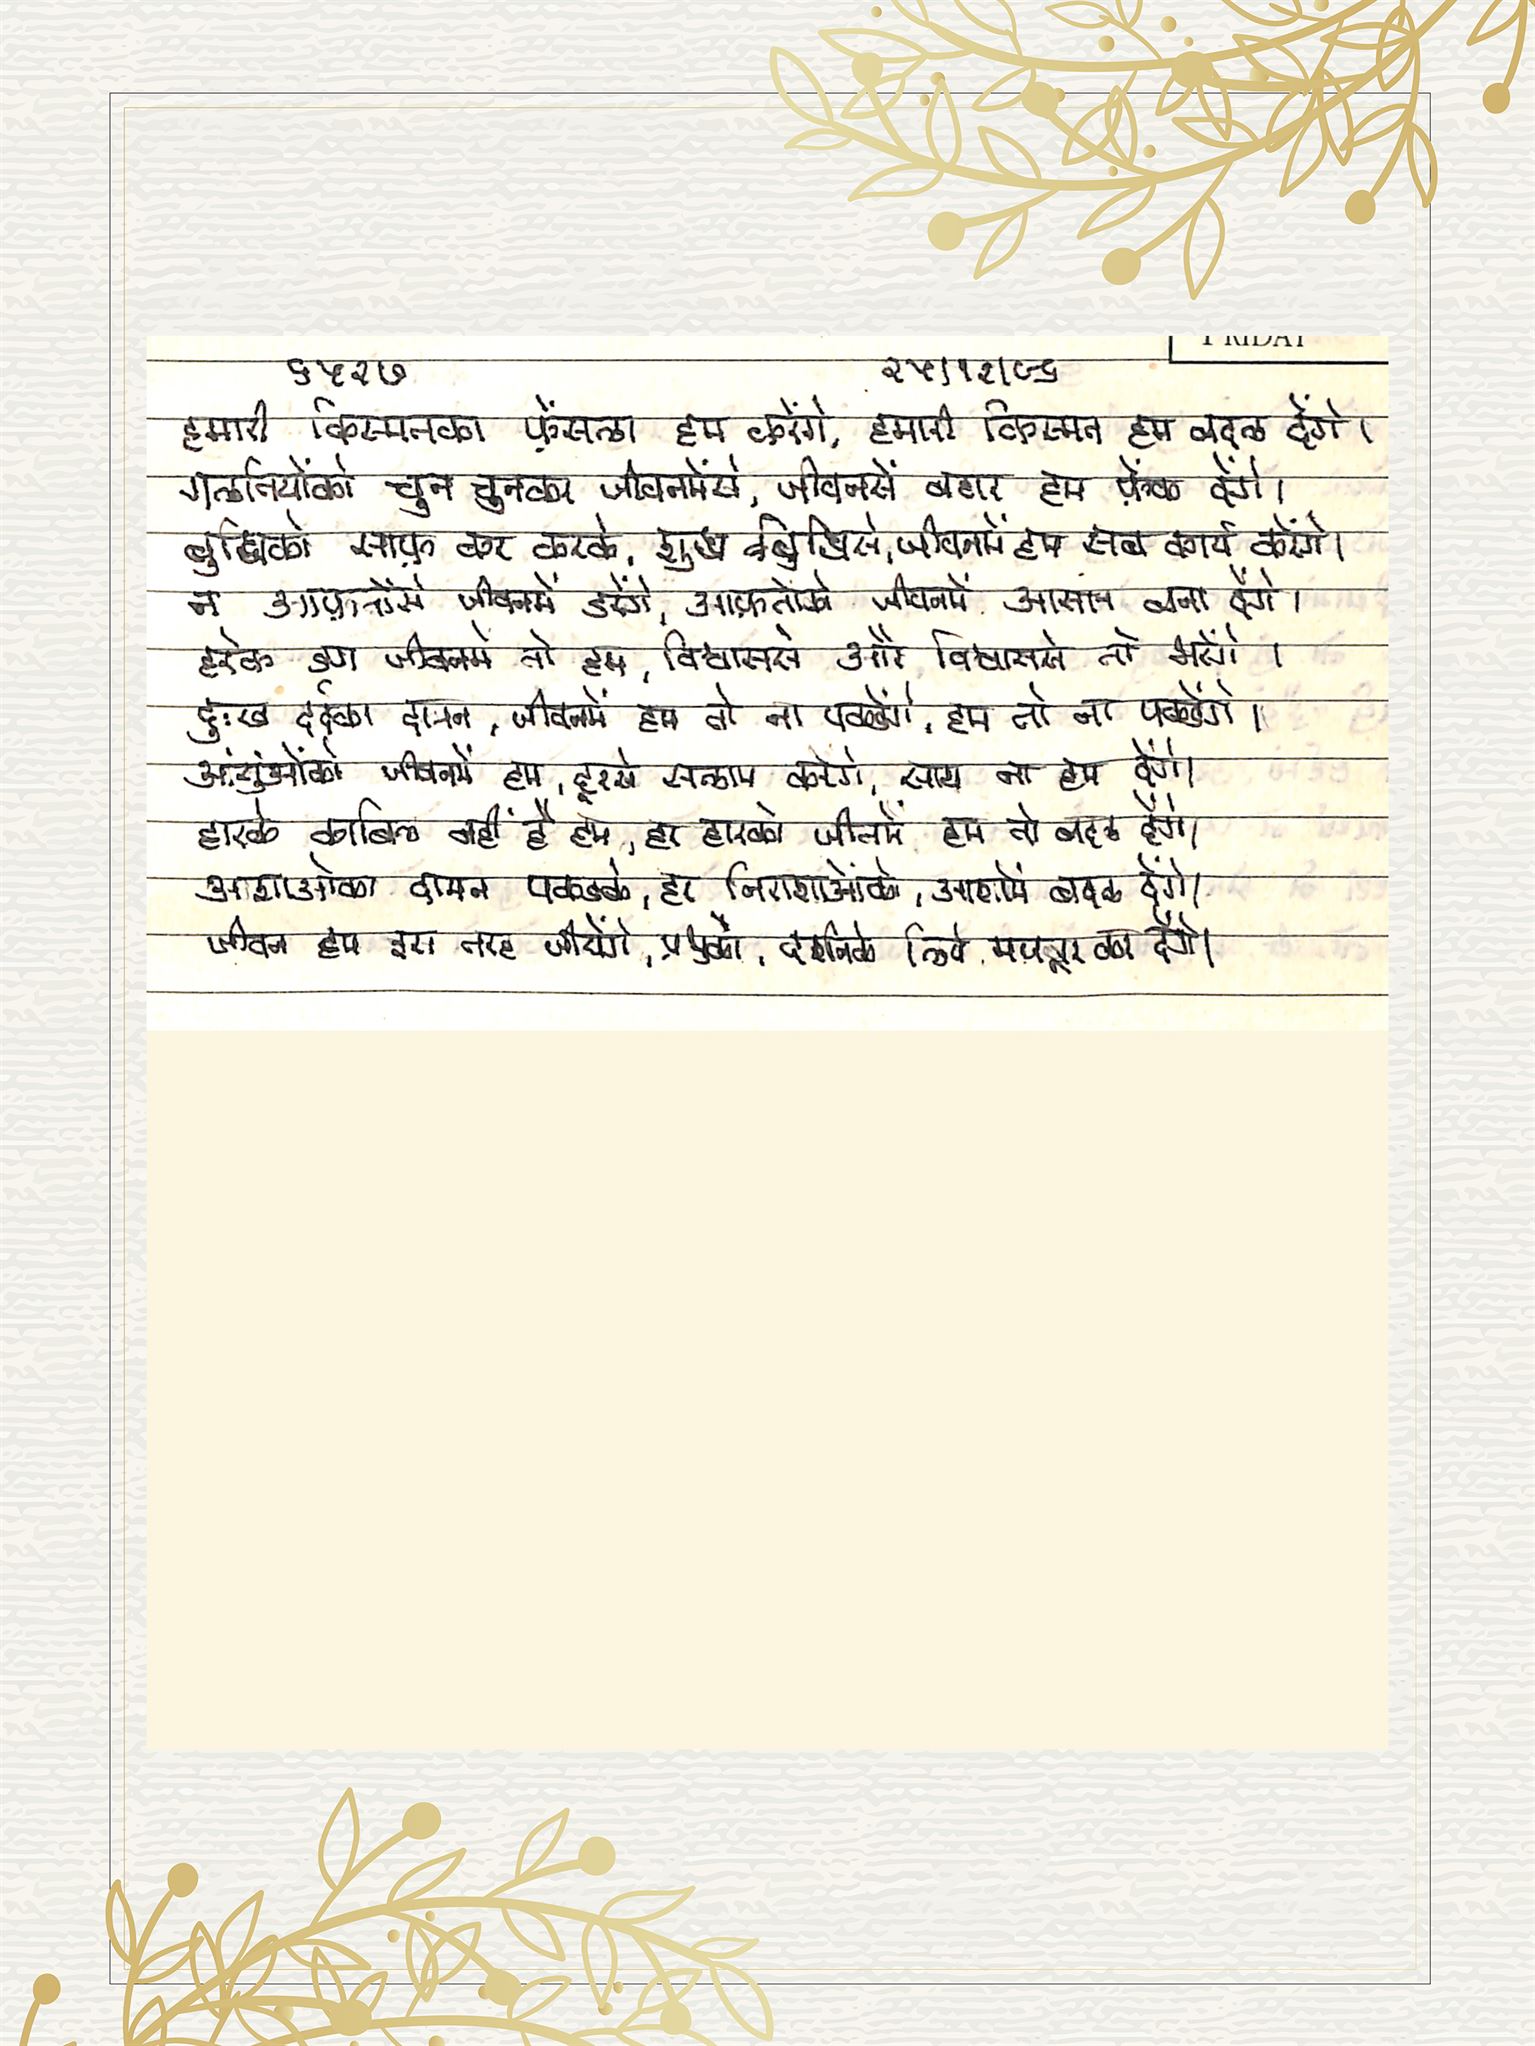 FRIDAY
६५२७ २५।१२।८६
हमारी किस्मतका फ़ेंसला हम करेंगे, हमारी किस्मत हम बदल देंगे।
गलतियोंको चुन चुनकर जीवनमेंसे, जीवनसें बहार हम फ़ेंक देंगे।
बुद्धिको साफ़ कर करके, शुद्ध बुद्धिसे, जीवनमें हम सब कार्य करेंगे।
न आफ़तोंसे जीवनमें डरेंगे, आफ़तोको जीवनमें आसान बना देंगे।
हरेक डग जीवनमे तो हम, विश्वाससे और विश्वाससे तो भरेंगे।
दुःख दर्दका दामन, जीवनमें हम तो ना पकडेंगे, हम तो ना पकडेंगे।
आंसुंओंको जीवनमें हम, दूरसे सलाम करेंगे, साथ ना हम देंगे।
हारके काबिल नहीं है हम, हर हारको जीतमें हम तो बदल देंगे।
आशाओका दामन पकडके, हर निराशाओंको, आशामें बदल देंगे।
जीवन हम इस तरह जीयेंगे, प्रभुको, दर्शनके लिये मजबूर कर देंगे।